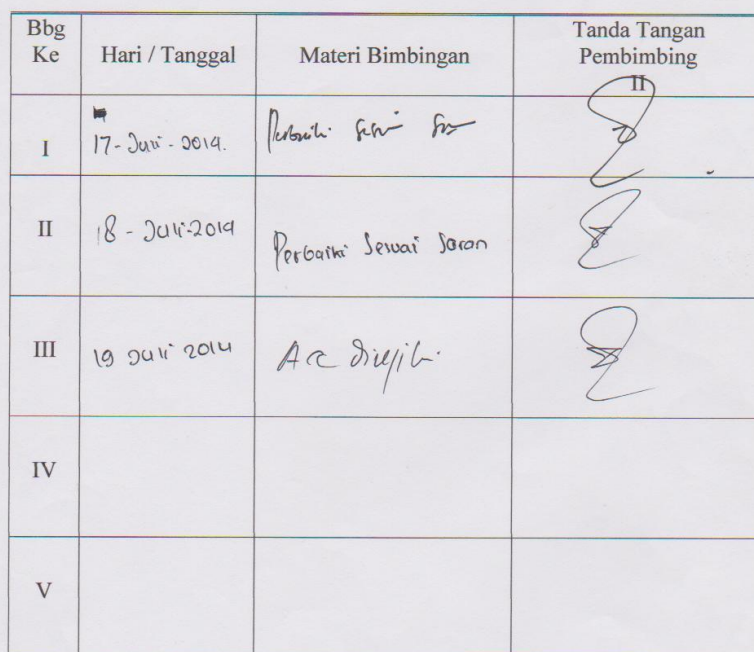 Bbg Ke
Hari / Tanggal
Materi Bimbingan
Tanda Tangan
Pembimbing
II
I
17 - Juli - 2014.
Perbaiki sesuai saran
II
18 - Juli - 2014
Perbaiki Sesuai Saran
III
19 Juli 2014
Acc diuji
IV
V